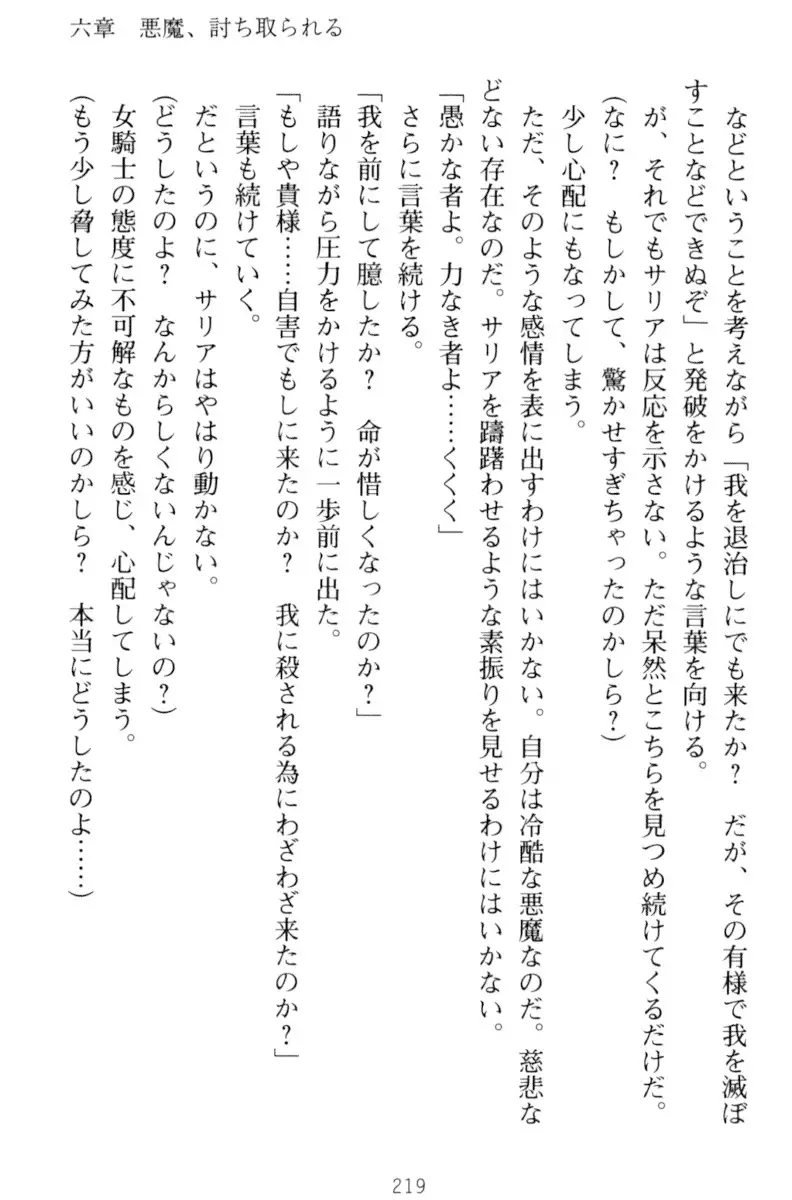 六章　悪魔、討ち取られる
などということを考えながら「我を退治しにでも来たか？　だが、その有様で我を滅ぼ
すことなどできぬぞ」と発破をかけるような言葉を向ける。
が、それでもサリアは反応を示さない。ただ呆然とこちらを見つめ続けてくるだけだ。
(なに？　もしかして、驚かせすぎちゃったのかしら？)
少し心配にもなってしまう。
ただ、そのような感情を表に出すわけにはいかない。自分は冷酷な悪魔なのだ。慈悲な
どない存在なのだ。サリアを躊躇わせるような素振りを見せるわけにはいかない。
「愚かな者よ。力なき者よ……くくく」
さらに言葉を続ける。
「我を前にして臆したか？　命が惜しくなったのか？」
語りながら圧力をかけるように一歩前に出た。
「もしや貴様……自害でもしに来たのか？　我に殺される為にわざわざ来たのか？」
言葉も続けていく。
だというのに、サリアはやはり動かない。
(どうしたのよ？　なんからしくないんじゃないの？)
女騎士の態度に不可解なものを感じ、心配してしまう。
(もう少し脅してみた方がいいのかしら？　本当にどうしたのよ……)
219